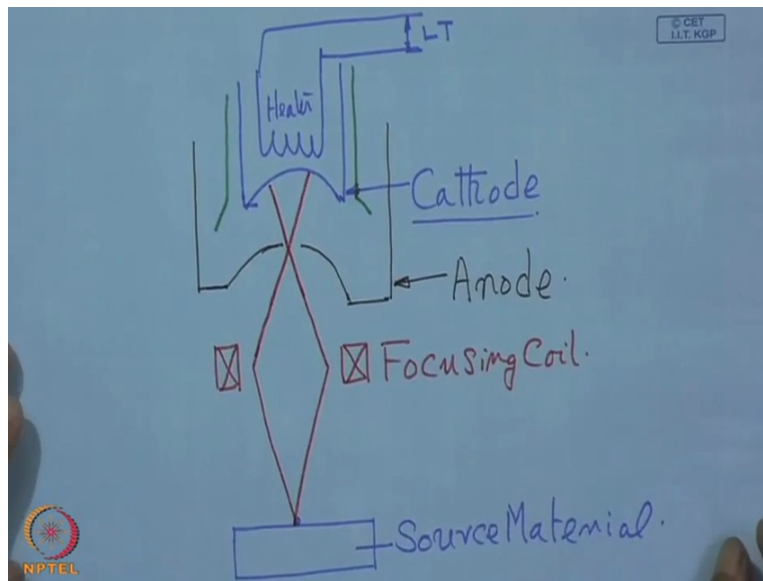 © CET
I.I.T. KGP
LT
Heater
Cathode
Anode.
Focusing Coil.
Source Material.
NPTEL